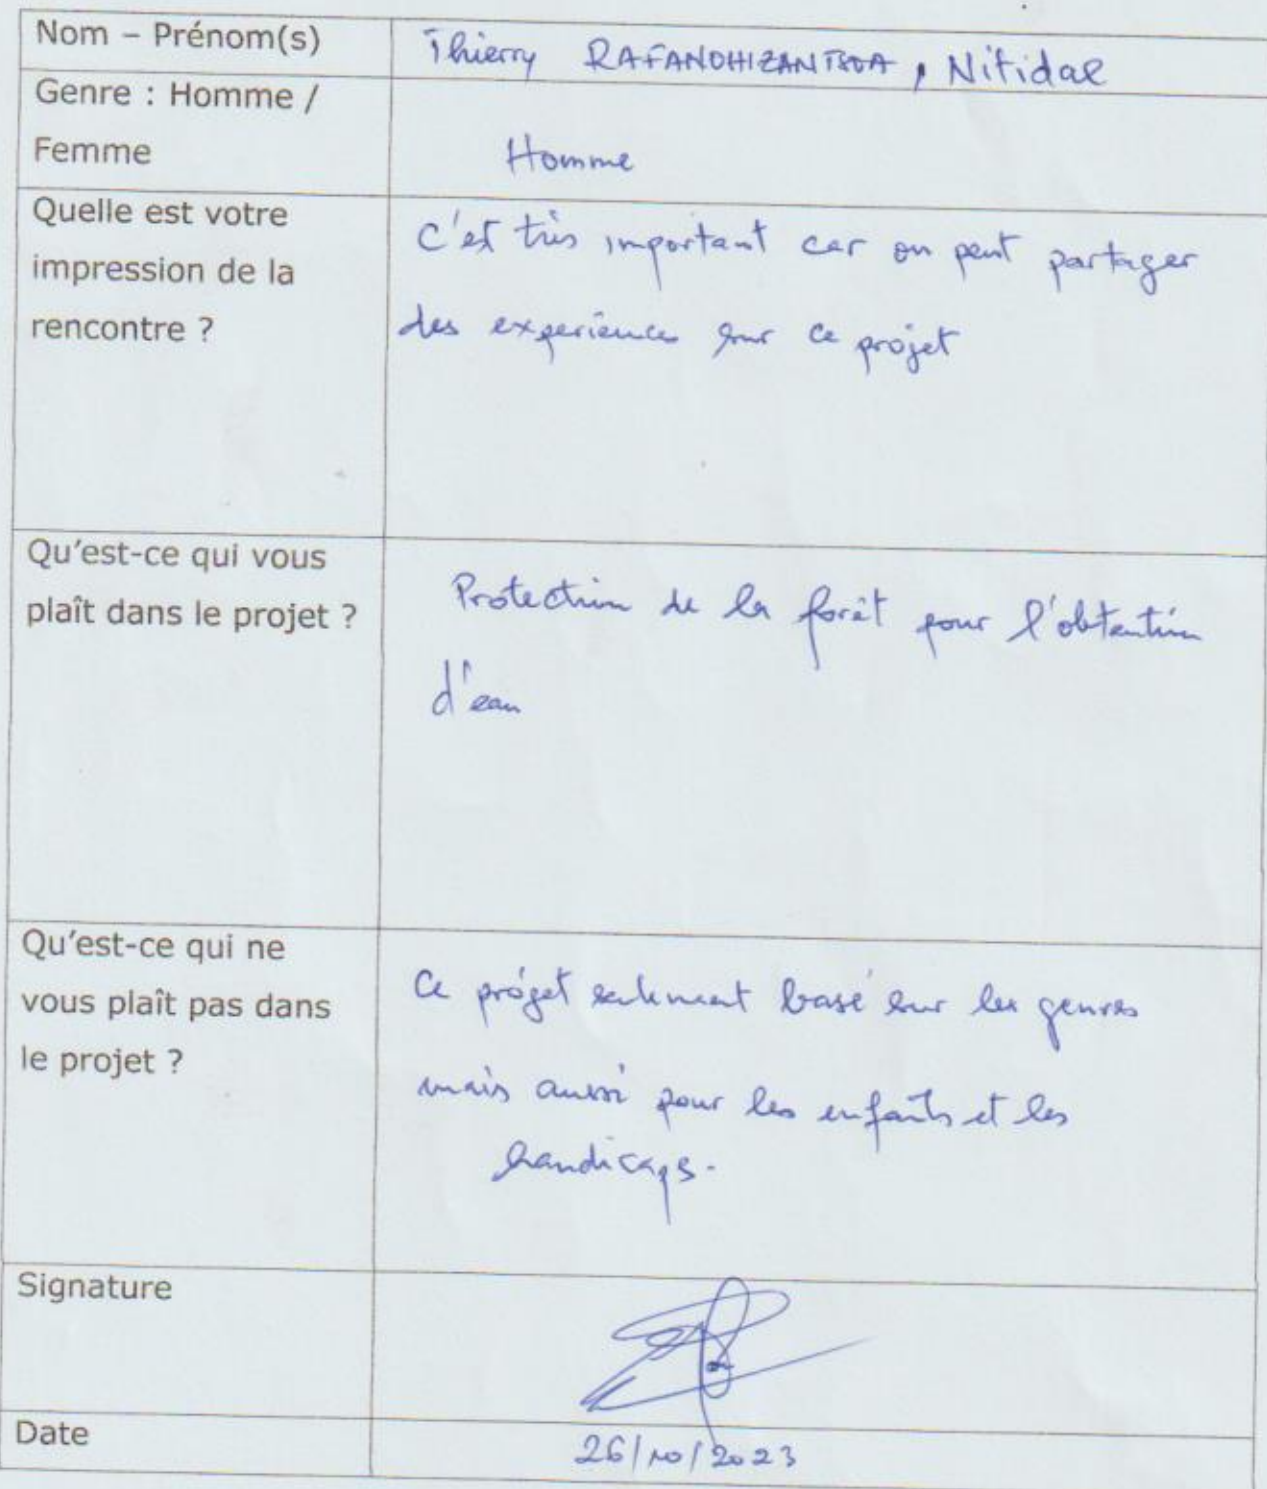 Nom – Prénom(s)
Thierry RAFANOHIZANTSOA, Nitidae
Genre : Homme /
Femme
Homme
Quelle est votre
impression de la
rencontre ?
C'est très important car on peut partager
des experiences sur ce projet
Qu'est-ce qui vous
plaît dans le projet ?
Protection de la forêt pour l'obtention
d'eau
Qu'est-ce qui ne
vous plaît pas dans
le projet ?
Ce projet seulement basé sur les genres
mais aussi pour les enfants et les
handicaps.
Signature
Date
26/10/2023